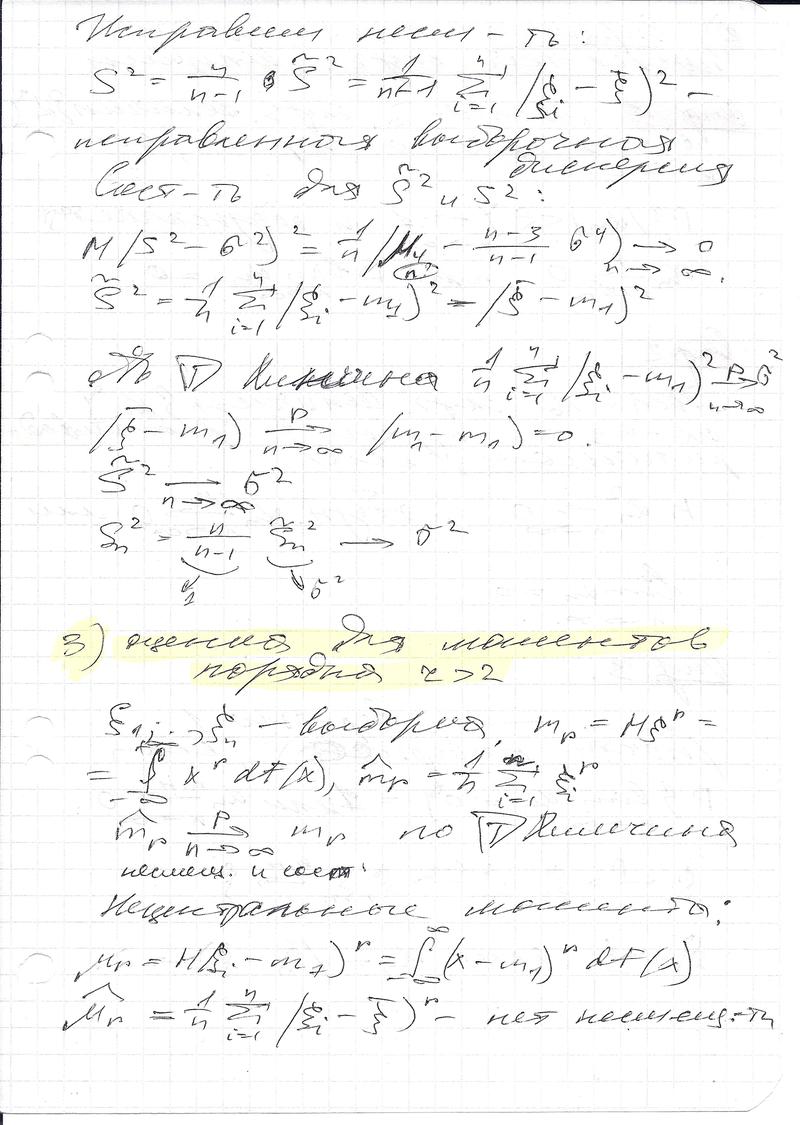 Исправим несм-ть:
S² = n/(n-1) · S̃² = 1/(n-1) Σ_{i=1}^{n} (ξ_i - ξ̄)² -
исправленная выборочная
дисперсия
Сост-ть для S̃² и S²:
M(S² - σ²)² = 1/n (μ₄ - (n-3)/(n-1) σ⁴) → 0
n → ∞.
S̃² = 1/n Σ_{i=1}^{n} (ξ_i - m₁)² - (ξ̄ - m₁)²
Т Хинчина 1/n Σ_{i=1}^{n} (ξ_i - m₁)² →^P_{n→∞} σ²
(ξ̄ - m₁) →^P_{n→∞} (m₁ - m₁) = 0.
S̃² →_{n→∞} σ²
S_n² = n/(n-1) S̃_n² → σ²
1 σ²
3) оценка для моментов
порядка r > 2
ξ₁, ..., ξ_n - выборка, m_r = Mξ^r =
= ∫_{-∞}^{∞} x^r dF(x), m̂_r = 1/n Σ_{i=1}^{n} ξ_i^r
m̂_r →^P_{n→∞} m_r по Т Хинчина
несмещ. и сост.
Нецентральные моменты:
μ_r = M(ξ_i - m₁)^r = ∫_{-∞}^{∞} (x - m₁)^r dF(x)
μ̂_r = 1/n Σ_{i=1}^{n} (ξ_i - ξ̄)^r - нет несмещ-ти